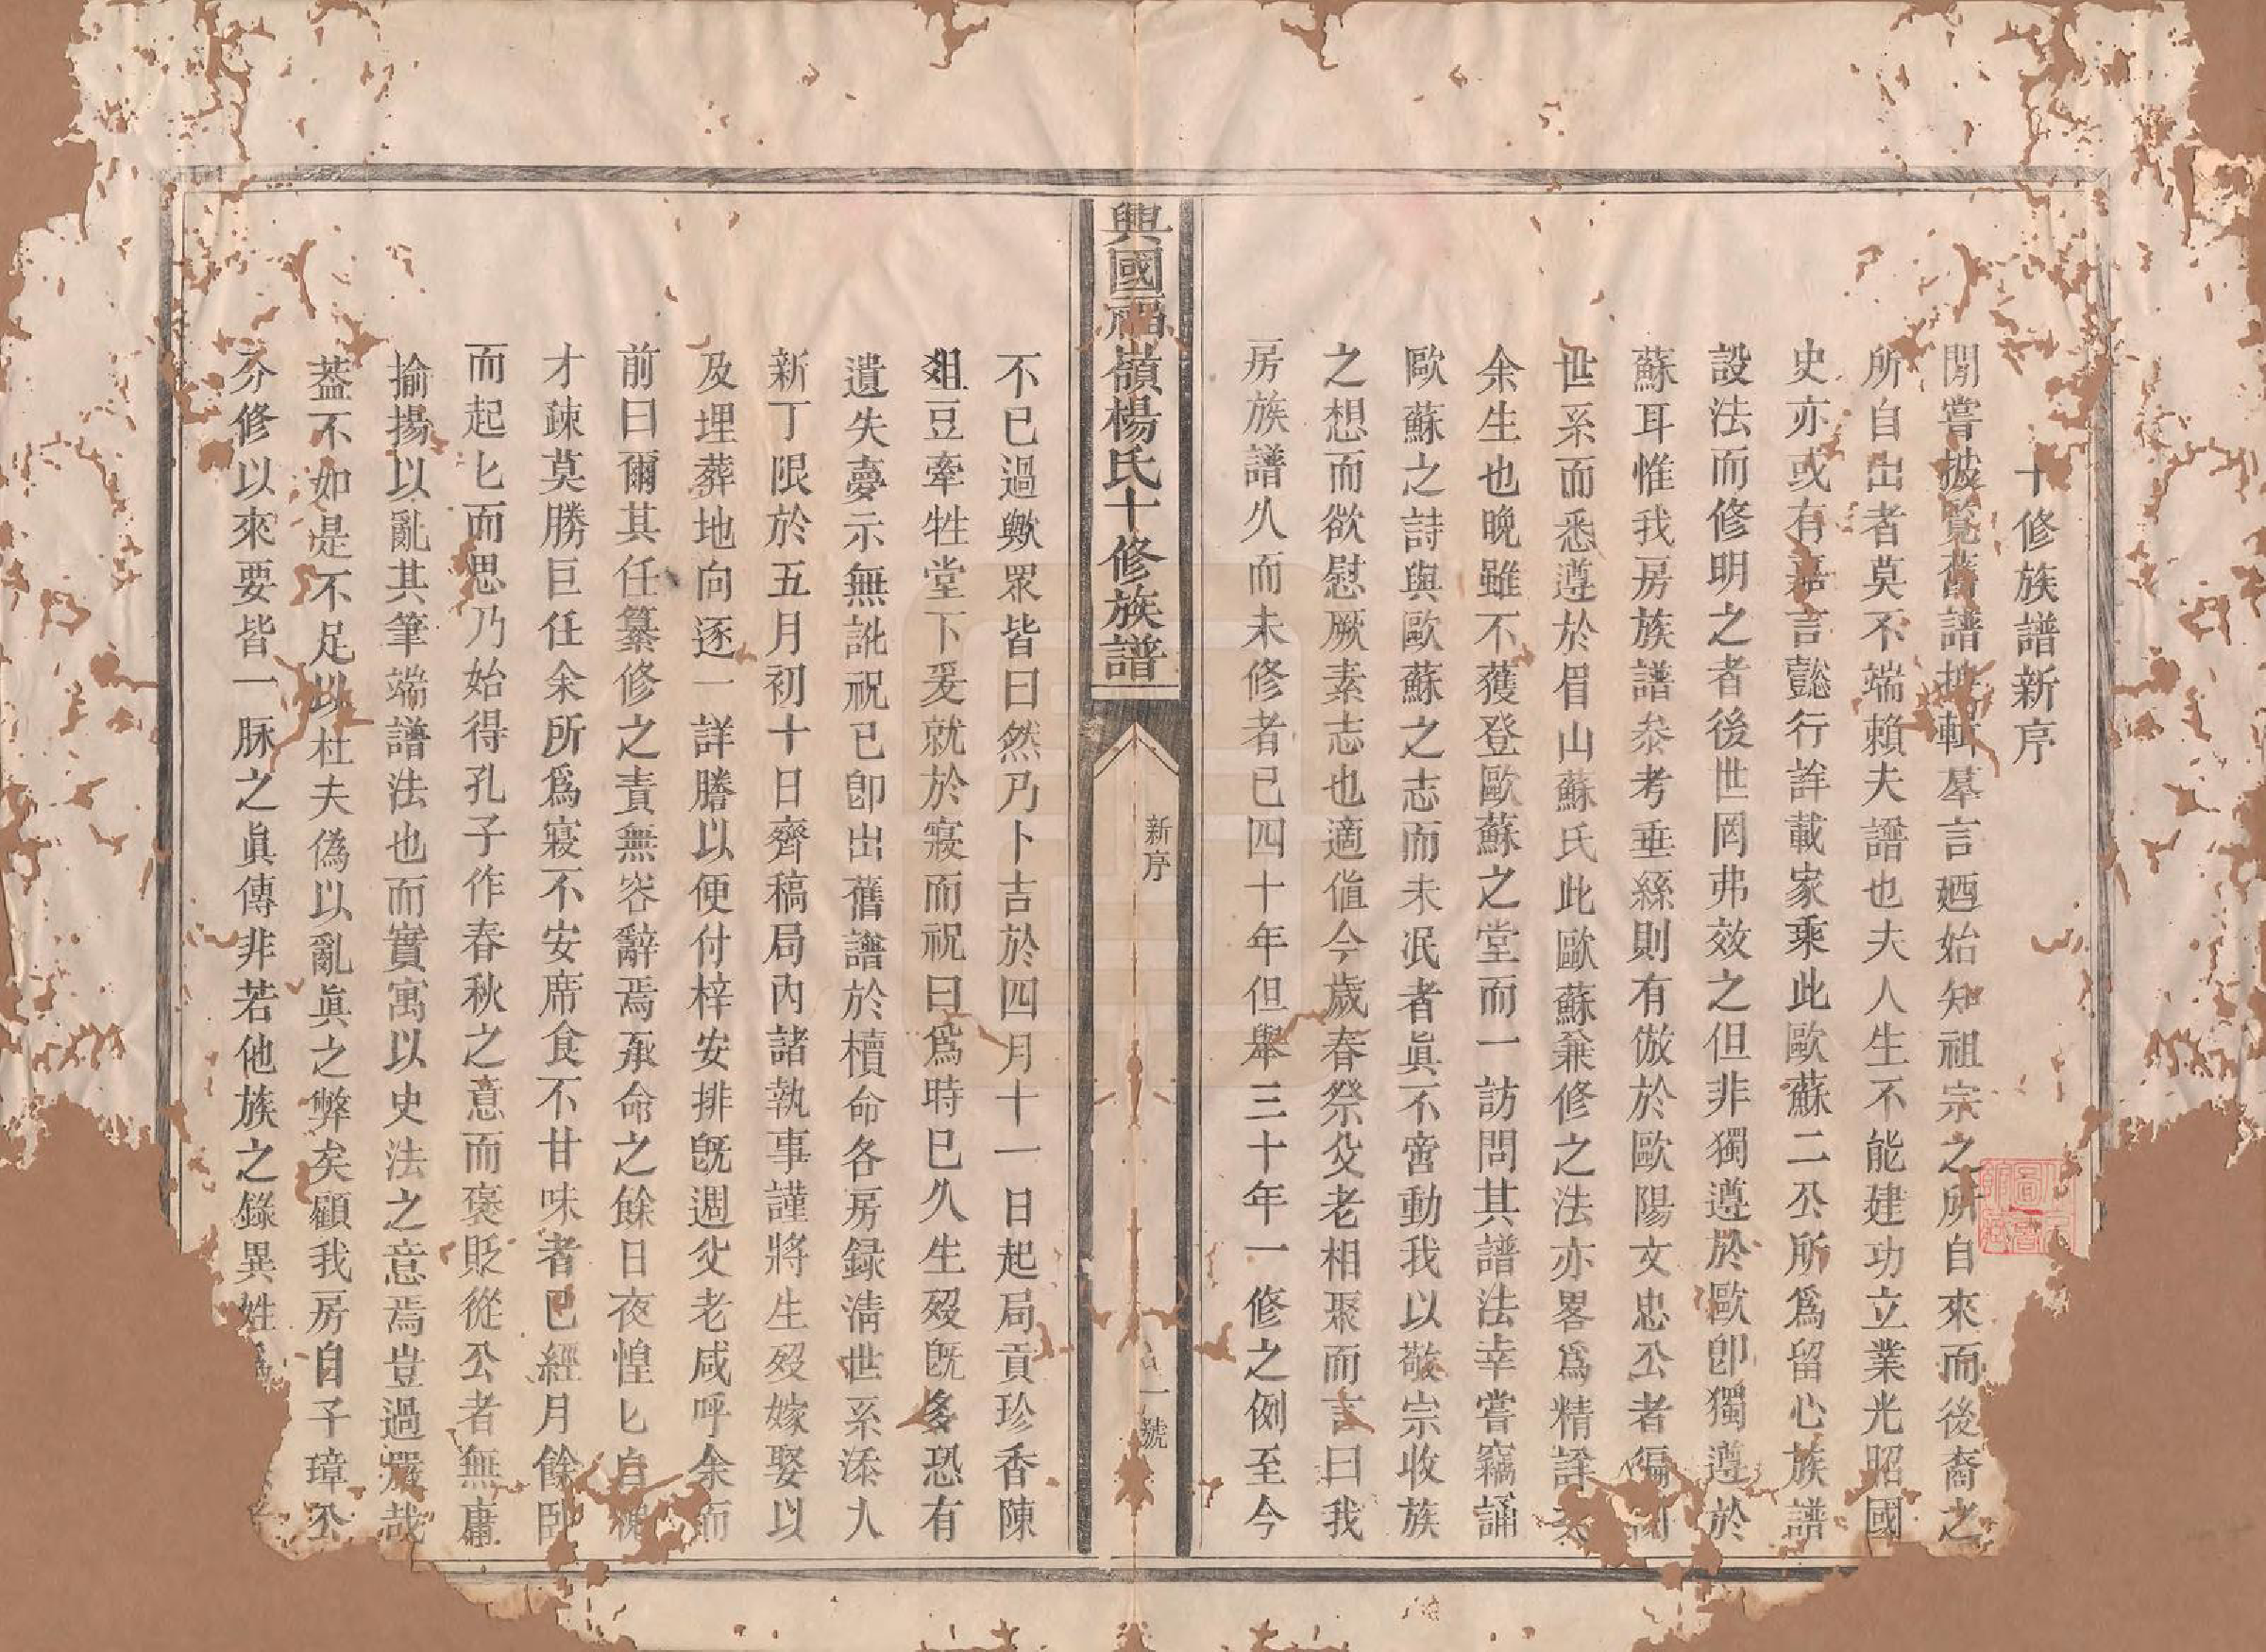 十修族譜新序
閒嘗披覽舊譜輯羣言廼始知祖宗之所自來而後裔之
所自出者莫不端賴夫譜也夫人生不能建功立業光昭國
史亦或有嘉言懿行詳載家乘此歐蘇二公所爲留心族譜
設法而修明之者後世罔弗效之但非獨遵於歐卽獨遵於
蘇耳惟我房族譜叅考垂絲則有倣於歐陽文忠公者編
世系而悉遵於眉山蘇氏此歐蘇兼修之法亦畧爲精詳矣
余生也晚雖不獲登歐蘇之堂而一訪問其譜法幸嘗竊誦
歐蘇之詩與歐蘇之志而未泯者眞不啻動我以敬宗收族
之想而欲慰厥素志也適值今歲春祭父老相聚而言曰我
房族譜久而未修者已四十年但舉三十年一修之例至今
興國福嶺楊氏十修族譜
新序
一號
不已過歟眾皆曰然乃卜吉於四月十一日起局貢珍香陳
爼豆牽牲堂下爰就於寢而祝曰爲時已久生殁旣多恐有
遺失夢示無訛祝已卽出舊譜於櫝命各房録淸世系添人
新丁限於五月初十日齊稿局內諸執事謹將生殁嫁娶以
及埋葬地向逐一詳謄以便付梓安排旣週父老咸呼余而
前曰爾其任纂修之責無容辭焉承命之餘日夜惶匕自愧
才疎莫勝巨任余所爲寢不安席食不甘味者已經月餘卧
而起匕而思乃始得孔子作春秋之意而褒貶從公者無庸
揄揚以亂其筆端譜法也而實寓以史法之意焉豈過嚴哉
葢不如是不足以杜夫僞以亂眞之弊矣顧我房自子璋公
分修以來要皆一脉之眞傳非若他族之錄異姓